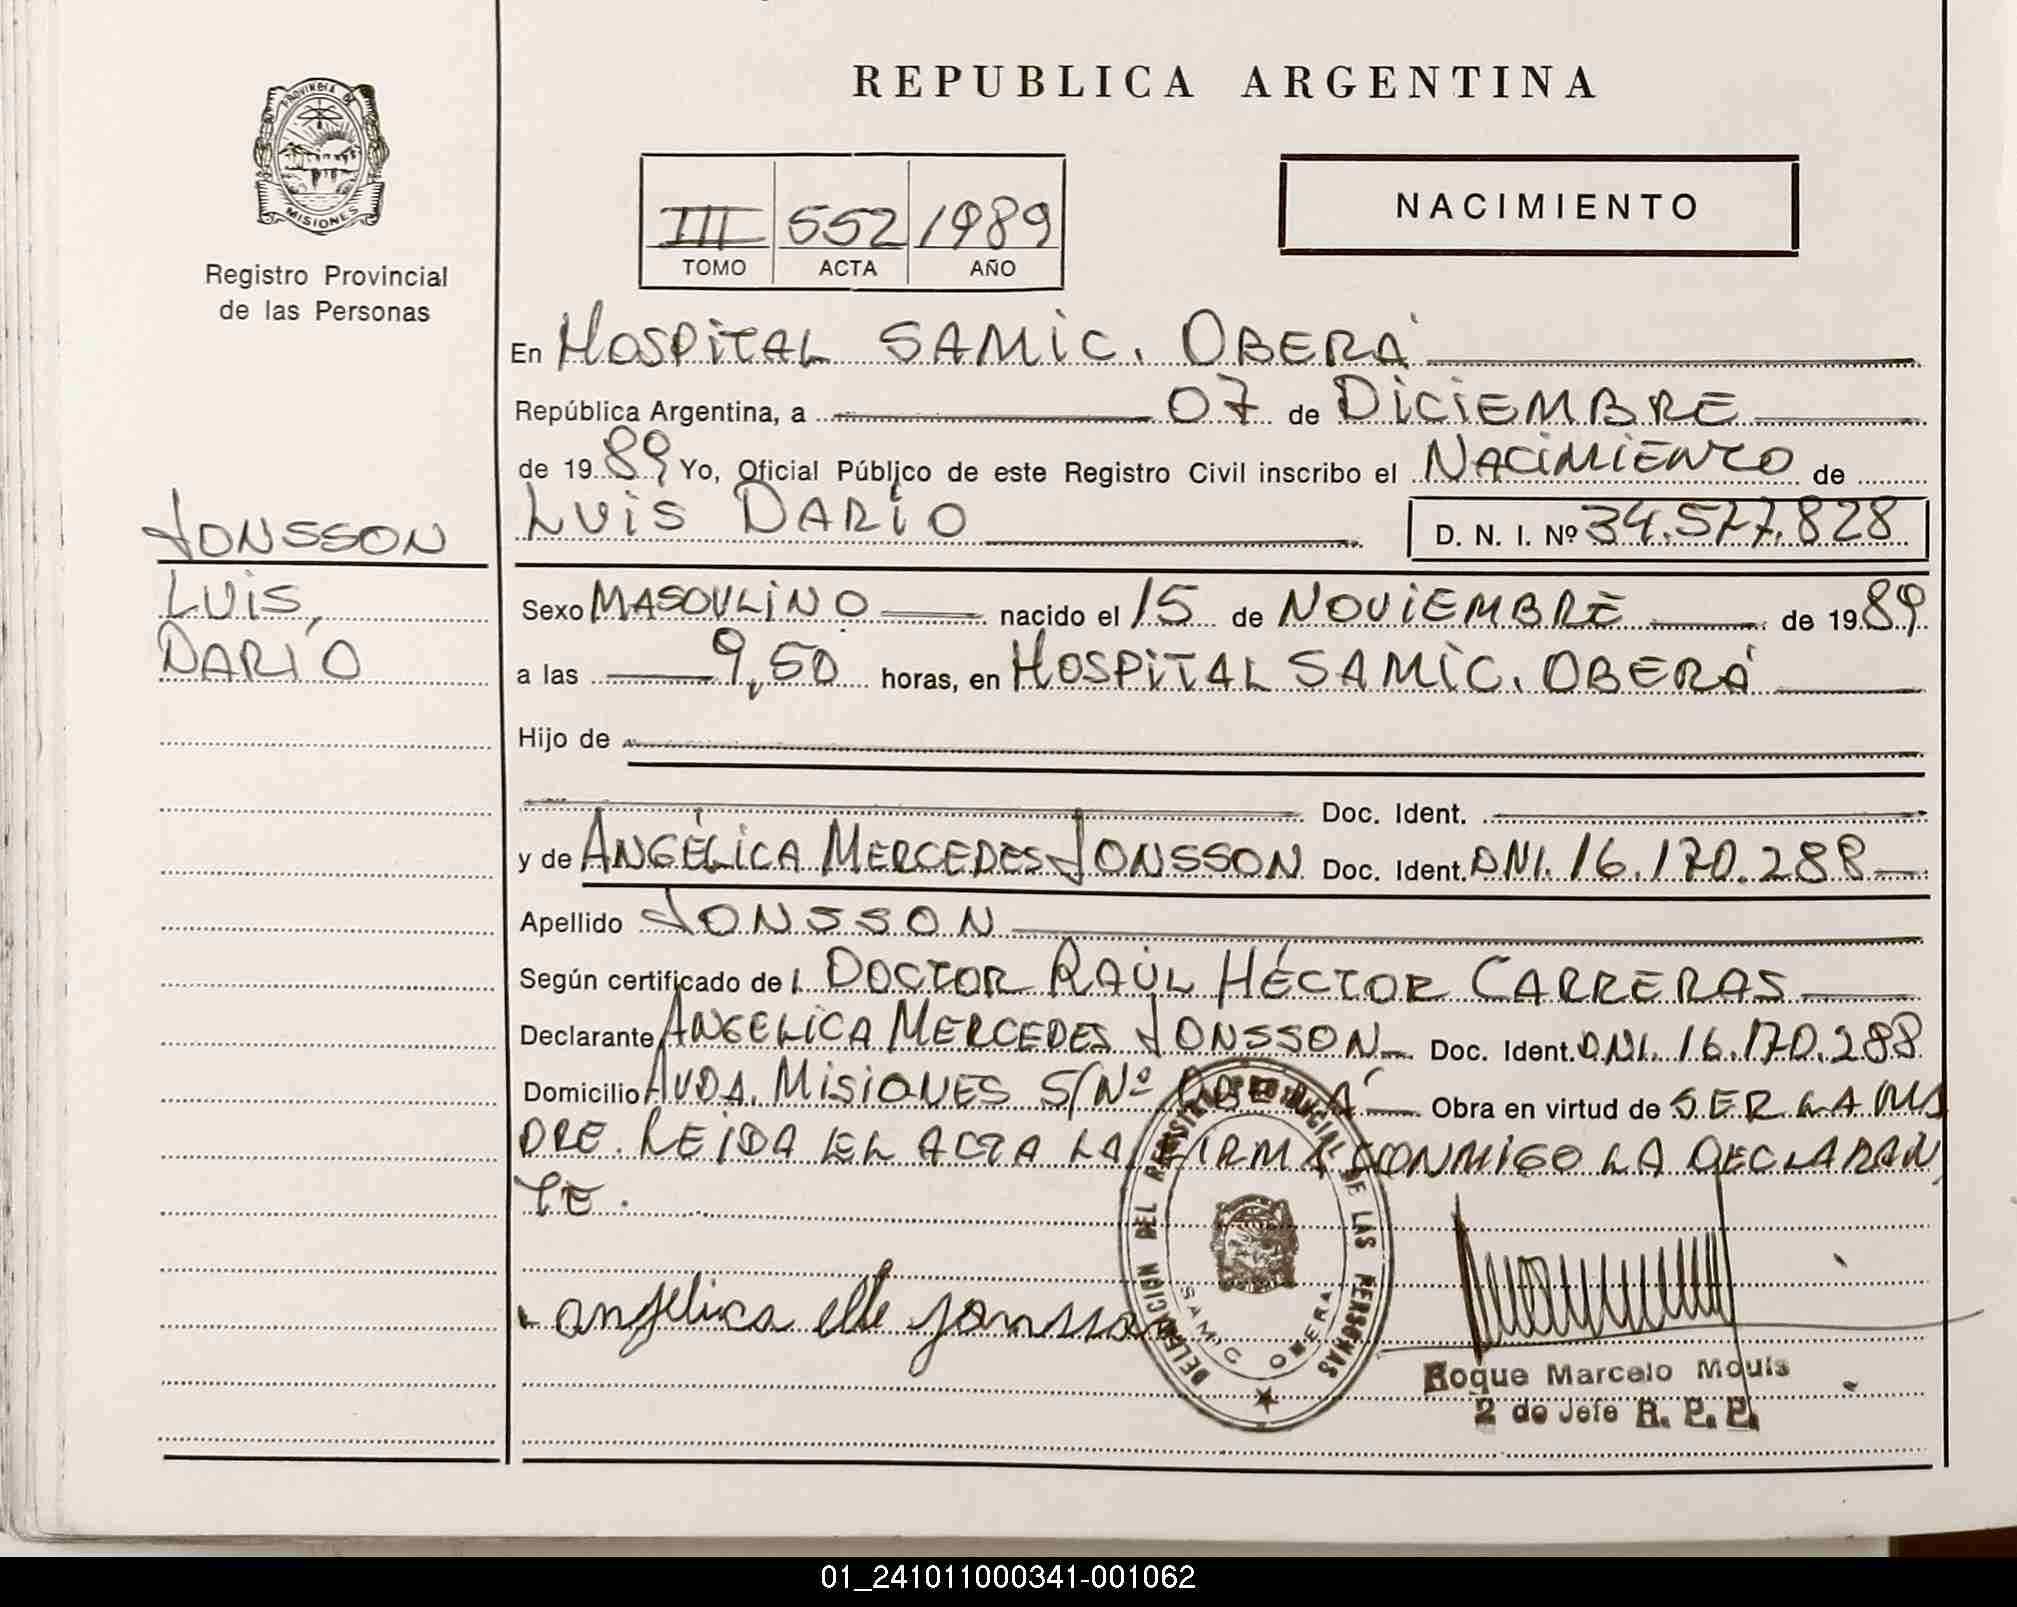 REPUBLICA ARGENTINA
PROVINCIA DE
MISIONES
Registro Provincial
de las Personas
III 552 1989
TOMO ACTA AÑO
NACIMIENTO
En HOSPITAL SAMIC. OBERÁ
República Argentina, a 07 de DICIEMBRE
de 1989 Yo, Oficial Público de este Registro Civil inscribo el NACIMIENTO de
JONSSON
LUIS DARÍO D. N. I. Nº 34.577.828
LUIS,
DARÍO
Sexo MASCULINO nacido el 15 de NOVIEMBRE de 1989
a las 9,50 horas, en HOSPITAL SAMIC. OBERÁ
Hijo de
Doc. Ident.
y de ANGÉLICA MERCEDES JONSSON Doc. Ident. DNI. 16.170.288
Apellido JONSSON
Según certificado de l DOCTOR RAÚL HÉCTOR CARRERAS
Declarante ANGELICA MERCEDES JONSSON Doc. Ident. DNI. 16.170.288
Domicilio AVDA. MISIONES S/Nº OBERÁ Obra en virtud de SER LA MA
DRE. LEIDA EL ACTA LA FIRMA CONMIGO LA DECLARAN
TE.
DELEGACION DEL REGISTRO PROVINCIAL DE LAS PERSONAS
SAMIC OBERA
angelica jonsson
Roque Marcelo Mouis
2 do Jefe R. P. P.
01_241011000341-001062